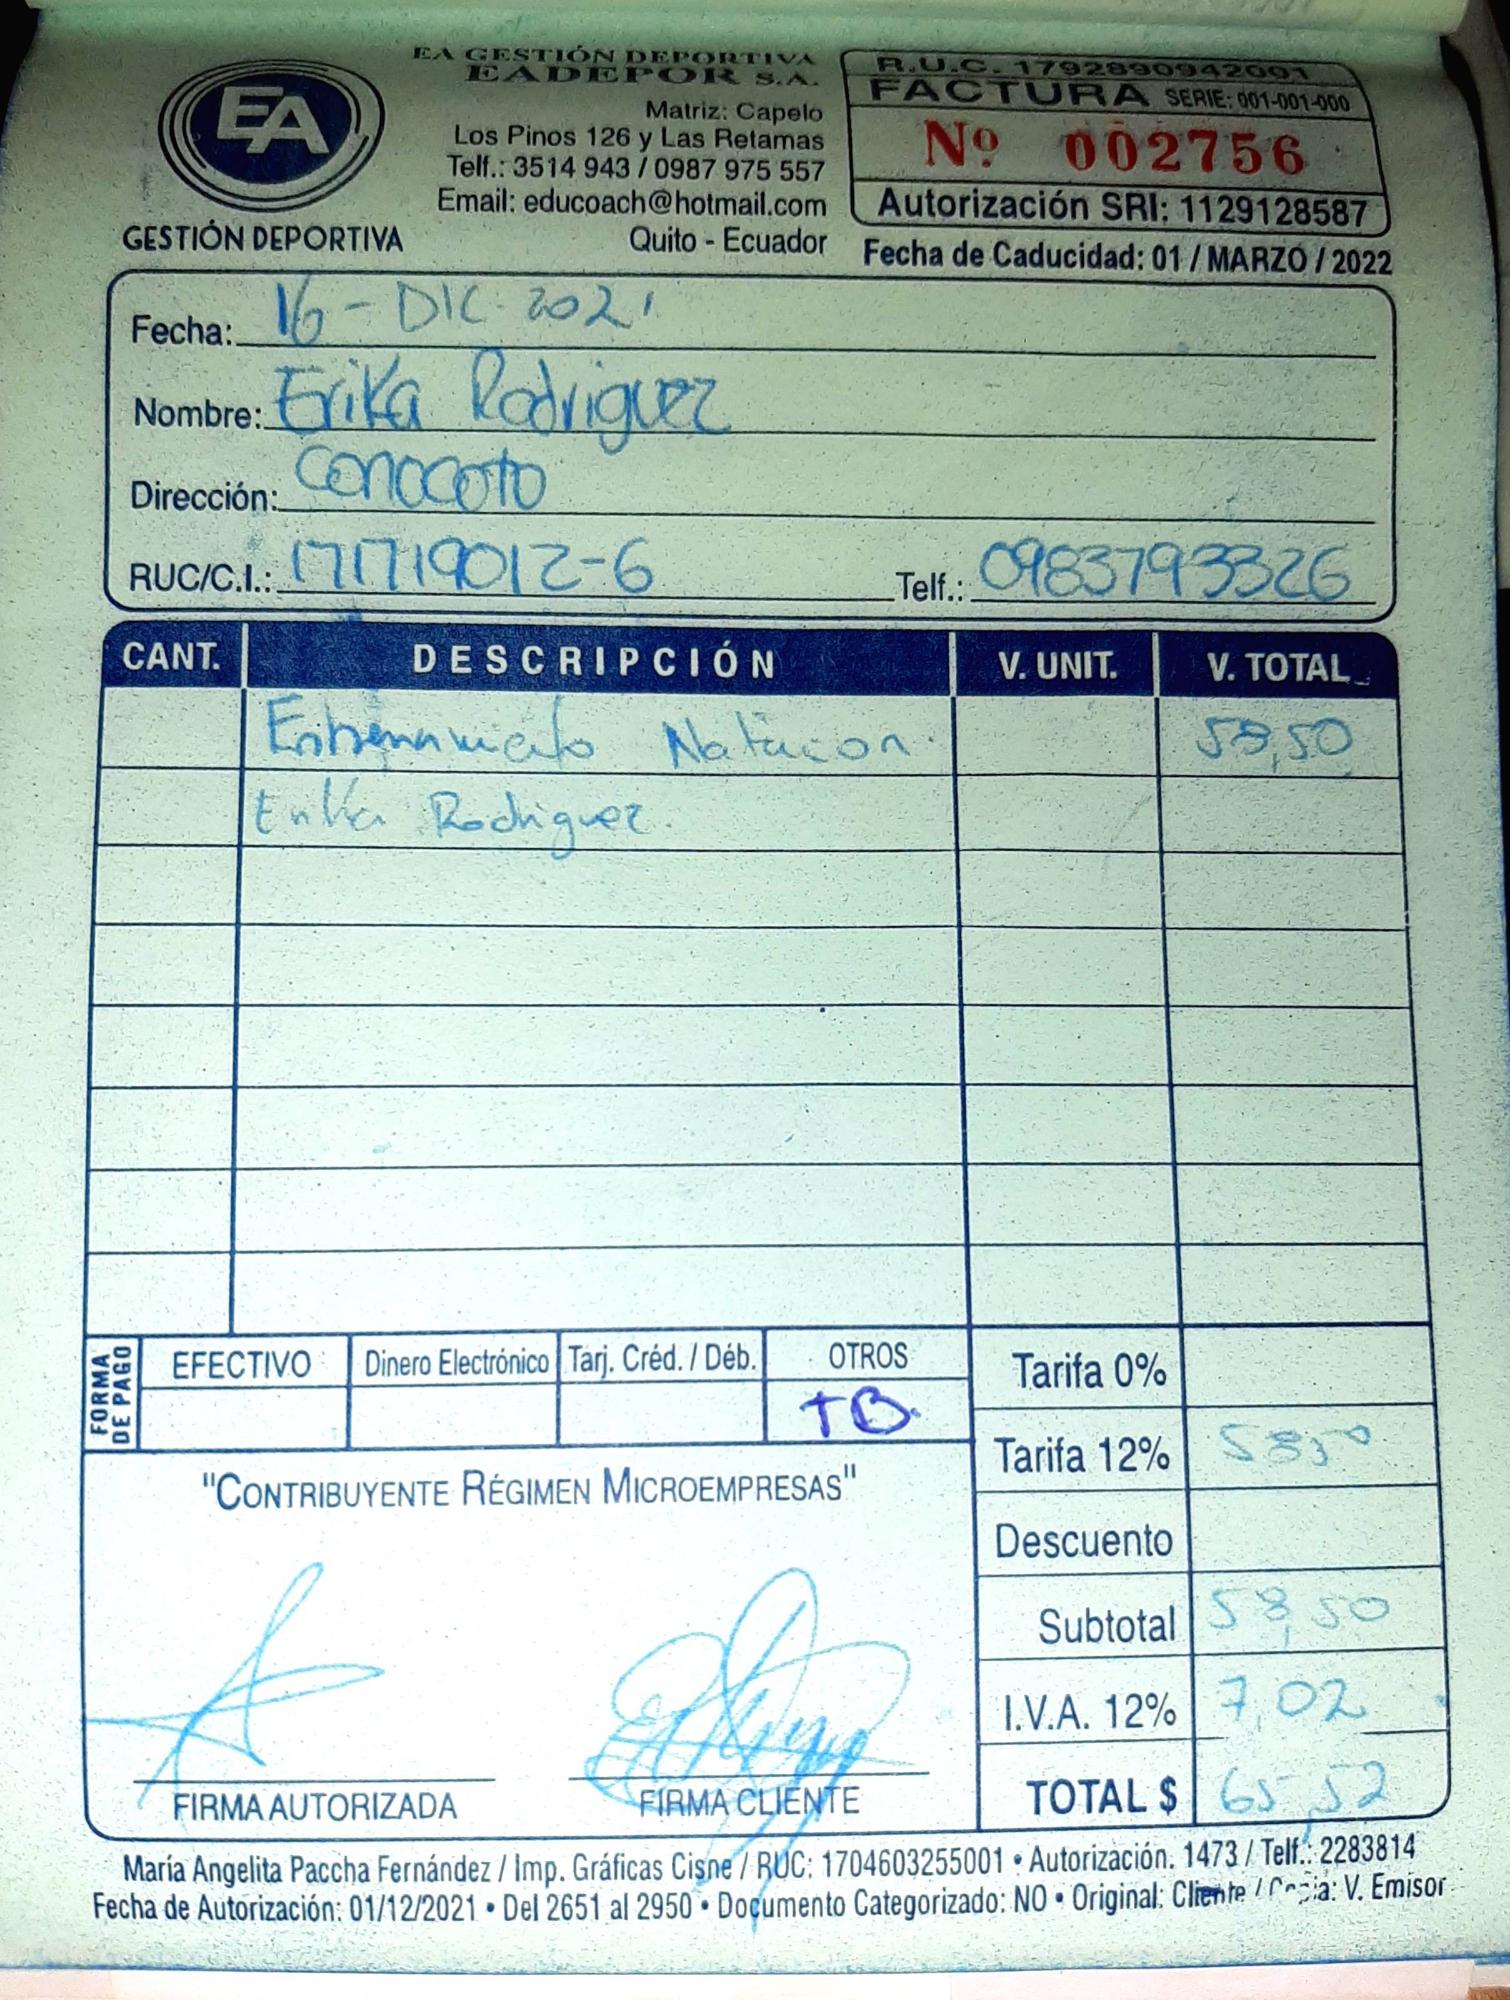 EA
GESTIÓN DEPORTIVA
EA GESTIÓN DEPORTIVA
EADEPOR S.A.
Matriz: Capelo
Los Pinos 126 y Las Retamas
Telf.: 3514 943 / 0987 975 557
Email: educoach@hotmail.com
Quito - Ecuador
R.U.C. 1792890942001
FACTURA SERIE: 001-001-000
Nº 002756
Autorización SRI: 1129128587
Fecha de Caducidad: 01 / MARZO / 2022
Fecha: 16 - DIC - 2021
Nombre: Erika Rodriguez
Dirección: Conocoto
RUC/C.I.: 171719012-6 Telf.: 0983793326
CANT. DESCRIPCIÓN V. UNIT. V. TOTAL
Entrenamiento Natacion. 58,50
Erika Rodriguez.
FORMA DE PAGO
EFECTIVO Dinero Electrónico Tarj. Créd. / Déb. OTROS
TB.
Tarifa 0%
Tarifa 12% 58,50
Descuento
Subtotal 58,50
I.V.A. 12% 7,02
TOTAL $ 65,52
"CONTRIBUYENTE RÉGIMEN MICROEMPRESAS"
FIRMA AUTORIZADA FIRMA CLIENTE
María Angelita Paccha Fernández / Imp. Gráficas Cisne / RUC: 1704603255001 • Autorización. 1473 / Telf.: 2283814
Fecha de Autorización: 01/12/2021 • Del 2651 al 2950 • Documento Categorizado: NO • Original: Cliente / Copia: V. Emisor